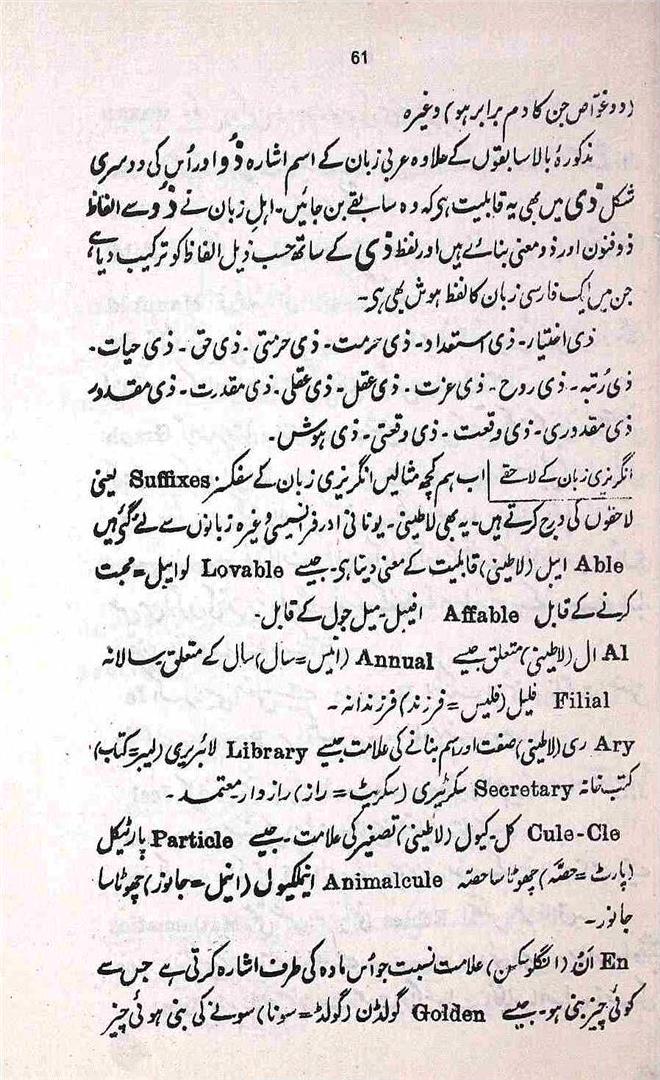 61
(دو غوّاص جن کا دم برابر ہو) وغیرہ
مذکورۂ بالا سابقوں کے علاوہ عربی زبان کے اسم اشارہ ذُو اور اُس کی دوسری
شکل ذی میں بھی یہ قابلیت ہی کہ وہ سابقے بن جائیں۔ اہلِ زبان نے ذُو سے الفاظ
ذو فنون اور ذو معنی بنائے ہیں اور لفظ ذی کے ساتھ حسب ذیل الفاظ کو ترکیب دیا ہے،
جن میں ایک فارسی زبان کا لفظ ہوش بھی ہی۔
ذی اختیار۔ ذی استعداد۔ ذی حرمت۔ ذی حرمتی۔ ذی حق۔ ذی حیات۔
ذی رُتبہ۔ ذی روح۔ ذی عزت۔ ذی عقل۔ ذی عقلی۔ ذی مقدرت۔ ذی مقدور
ذی مقدوری۔ ذی وقعت۔ ذی وقعتی۔ ذی ہوش۔
انگریزی زبان کے لاحقے اب ہم کچھ مثالیں انگریزی زبان کے سفکسز Suffixes یعنی
لاحقوں کی درج کرتے ہیں۔ یہ بھی لاطینی۔ یونانی اور فرانسیسی وغیرہ زبانوں سے لئے گئے ہیں
Able ایبل (لاطینی) قابلیت کے معنی دیتا ہی۔ جیسے Lovable لوایبل = محبت
کرنے کے قابل Affable افیبل۔ میل جول کے قابل۔
Al ال (لاطینی) متعلق جیسے Annual (انیس = سال) سال کے متعلق۔ سالانہ
Filial فلیل (فلیس = فرزند) فرزندانہ۔
Ary ری (لاطینی) صفت اور اسم بنانے کی علامت جیسے Library لائبریری (لیبر = کتاب)
کتب خانہ Secretary سکرٹیری (سکریٹ = راز) راز دار معتمد۔
Cule-Cle کل۔ کیول (لاطینی) تصغیر کی علامت۔ جیسے Particle پارٹیکل
(پارٹ = حصّہ) چھوٹا سا حصّہ Animalcule انیملکیول (انیمل = جانور) چھوٹا سا
جانور۔
En اَنُ (انگلوسیکسن) علامت نسبت جو اُس مادہ کی طرف اشارہ کرتی ہے جس سے
کوئی چیز بنی ہو۔ جیسے Golden گولڈن (گولڈ = سونا) سونے کی بنی ہوئی چیز